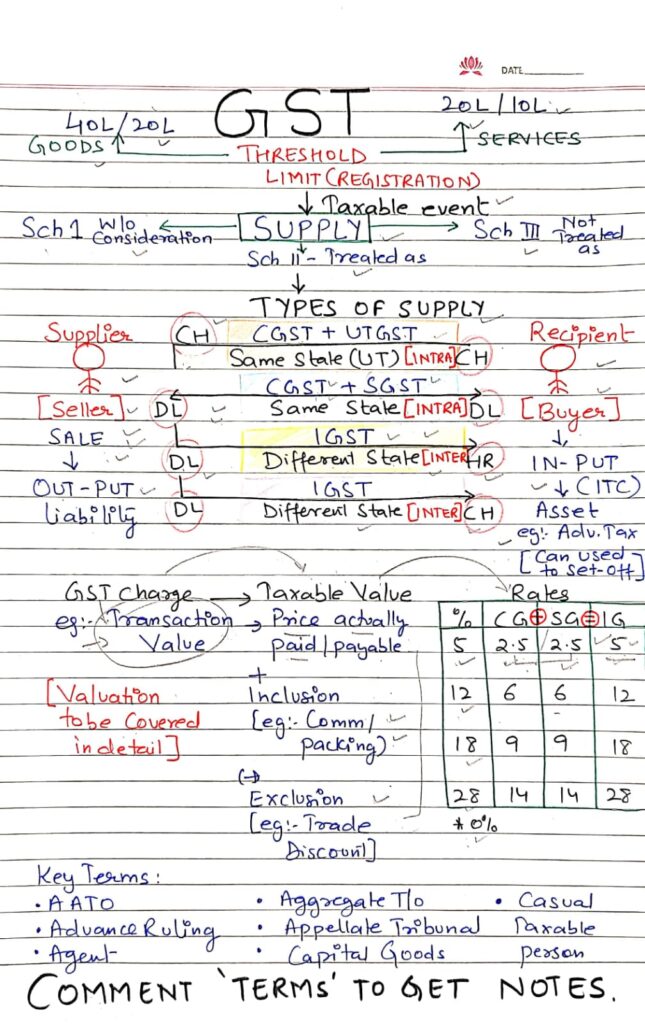 DATE
GST
40L/20L
20L/10L
GOODS
SERVICES
THRESHOLD
LIMIT(REGISTRATION)
Taxable event
Sch 1 W/o Consideration
SUPPLY
Sch III Not Treated as
Sch II - Treated as
TYPES OF SUPPLY
Supplier
CH
CGST + UTGST
Recipient
Same State (UT) [INTRA] CH
CGST + SGST
[Seller]
DL
Same State [INTRA] DL
[Buyer]
SALE
IGST
DL
Different State [INTER] HR
IN-PUT
OUT-PUT
IGST
(ITC)
liability
DL
Different State [INTER] CH
Asset
eg:- Adv. Tax
[Can used to set-off]
GST Charge → Taxable Value
Rates
eg:- Transaction Value
→ Price actually
paid/payable
% CG + SG = IG
5 2.5 2.5 5
+
Inclusion
12 6 6 12
[Valuation
to be Covered
in detail]
[eg:- Comm/
packing)
18 9 9 18
(-)
Exclusion
28 14 14 28
[eg:- Trade
Discount]
* 0%
Key Terms:
• AATO
• Aggregate T/o
• Casual
• Advance Ruling
• Appellate Tribunal
Taxable
• Agent
• Capital Goods
person
COMMENT 'TERMS' TO GET NOTES.